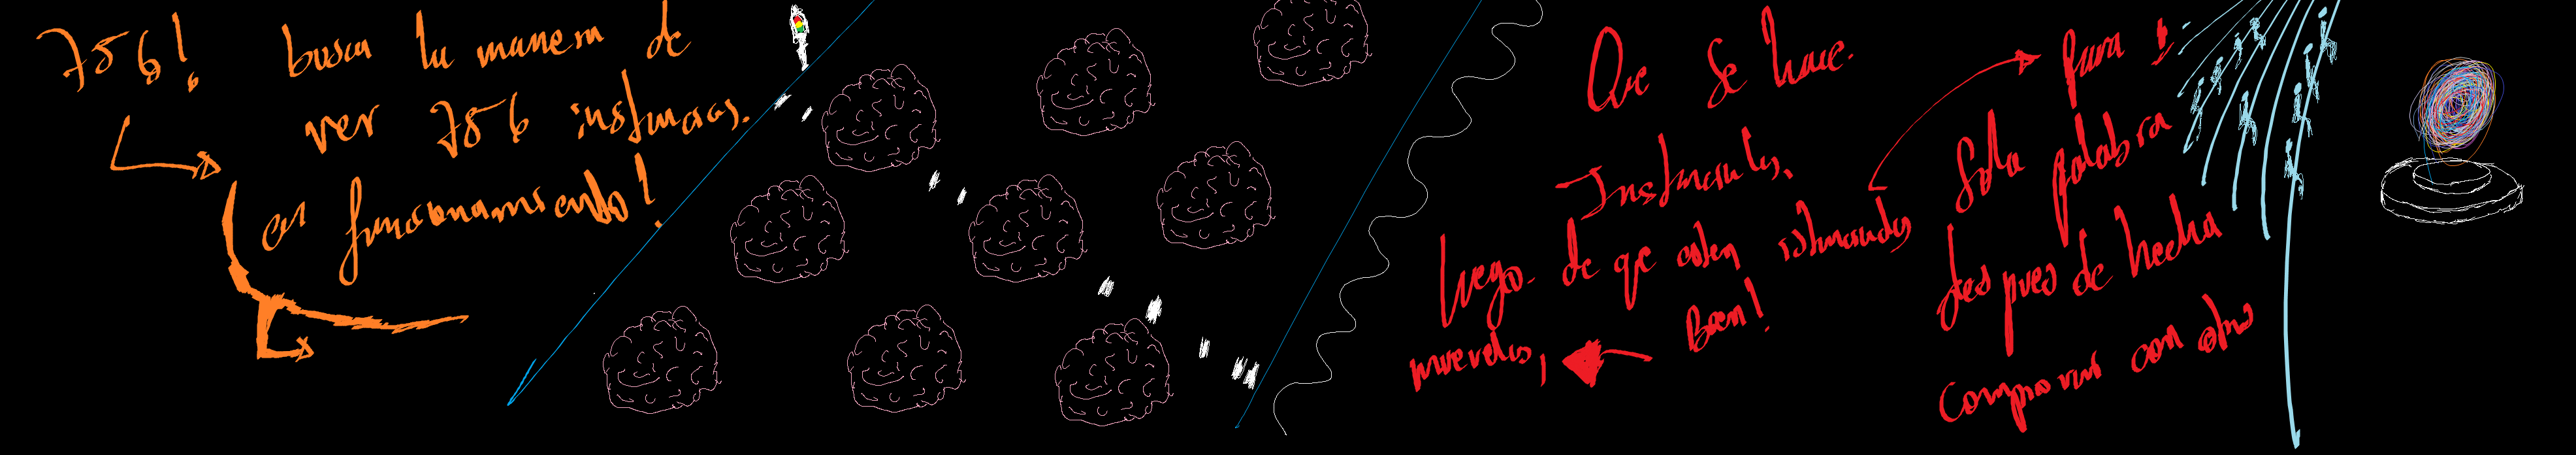 756! busca tu manera de
ver 756 instancias.
en funcionamiento!
Que Se hace.
Instanciales,
luego. de que esten instanciados
Bien!
muevelos,
para 1
Sola palabra
despues de hecha
comparas con otro